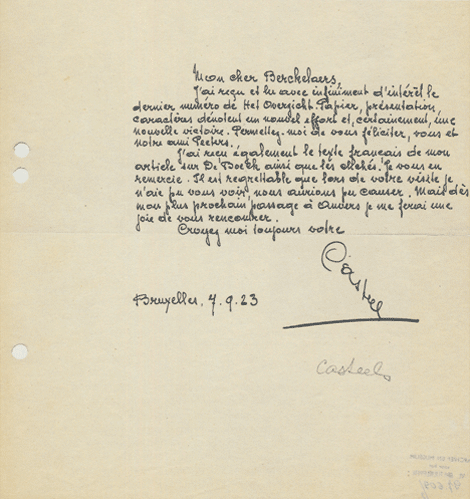 Mon cher Berckelaers,
J'ai reçu et lu avec infiniment d'intérêt le
dernier numéro de Het Overzicht. Papier, présentation,
caractères dénotent un nouvel effort et, certainement, une
nouvelle victoire. Permettez-moi de vous féliciter, vous et
notre ami Peeters.
J'ai reçu également le texte français de mon
article sur D. Boeck ainsi que les clichés. Je vous en
remercie. Il est regrettable que lors de votre visite je
n'aie pu vous voir, nous aurions pu causer. Mais dès
mon plus prochain passage à Anvers je me ferai une
joie de vous rencontrer.
Croyez moi toujours votre
Bruxelles, 7.9.23
Casteels